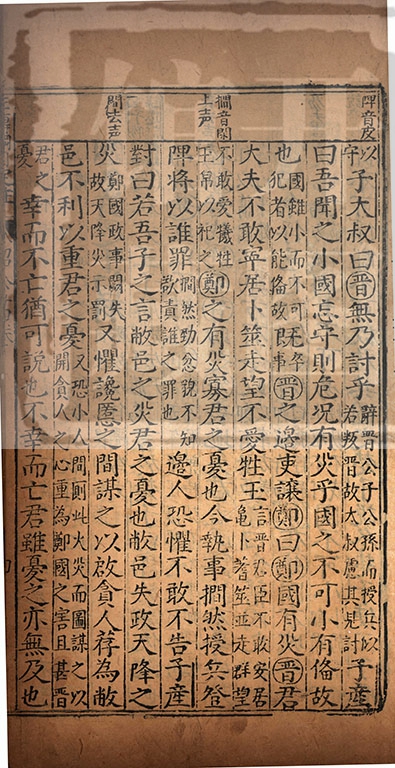 陴音皮
撊音閑上声
間去声
以守子太叔曰晋無乃討乎辭晋公子公孫而授兵似若叛晋故太叔慮其見討子産
曰吾聞之小國忘守則危况有災乎國之不可小有俻故
也國雖小而不可犯者以能俻故既卒事晋之邊吏讓鄭曰鄭國有災晋君
大夫不敢寧居卜筮走望不愛牲玉言晋君臣不敢安居龜卜蓍筮並走群望
不敢愛犧牲玉帛以祀之鄭之有災寡君之憂也今執事撊然授兵登
陴將以誰罪撊然勁忿貌不知欲責誰之罪也邊人恐懼不敢不告子産
對曰若吾子之言敝邑之災君之憂也敝邑失政天降之
災鄭國政事闕失故天降災示罰又懼讒慝之間謀之以啟貪人荐為敝
邑不利以重君之憂又恐小人間則此火災而圖謀之以開貪人之心重為鄭國之害且甚晋
君之憂幸而不亡猶可説也不幸而亡君雖憂之亦無及也